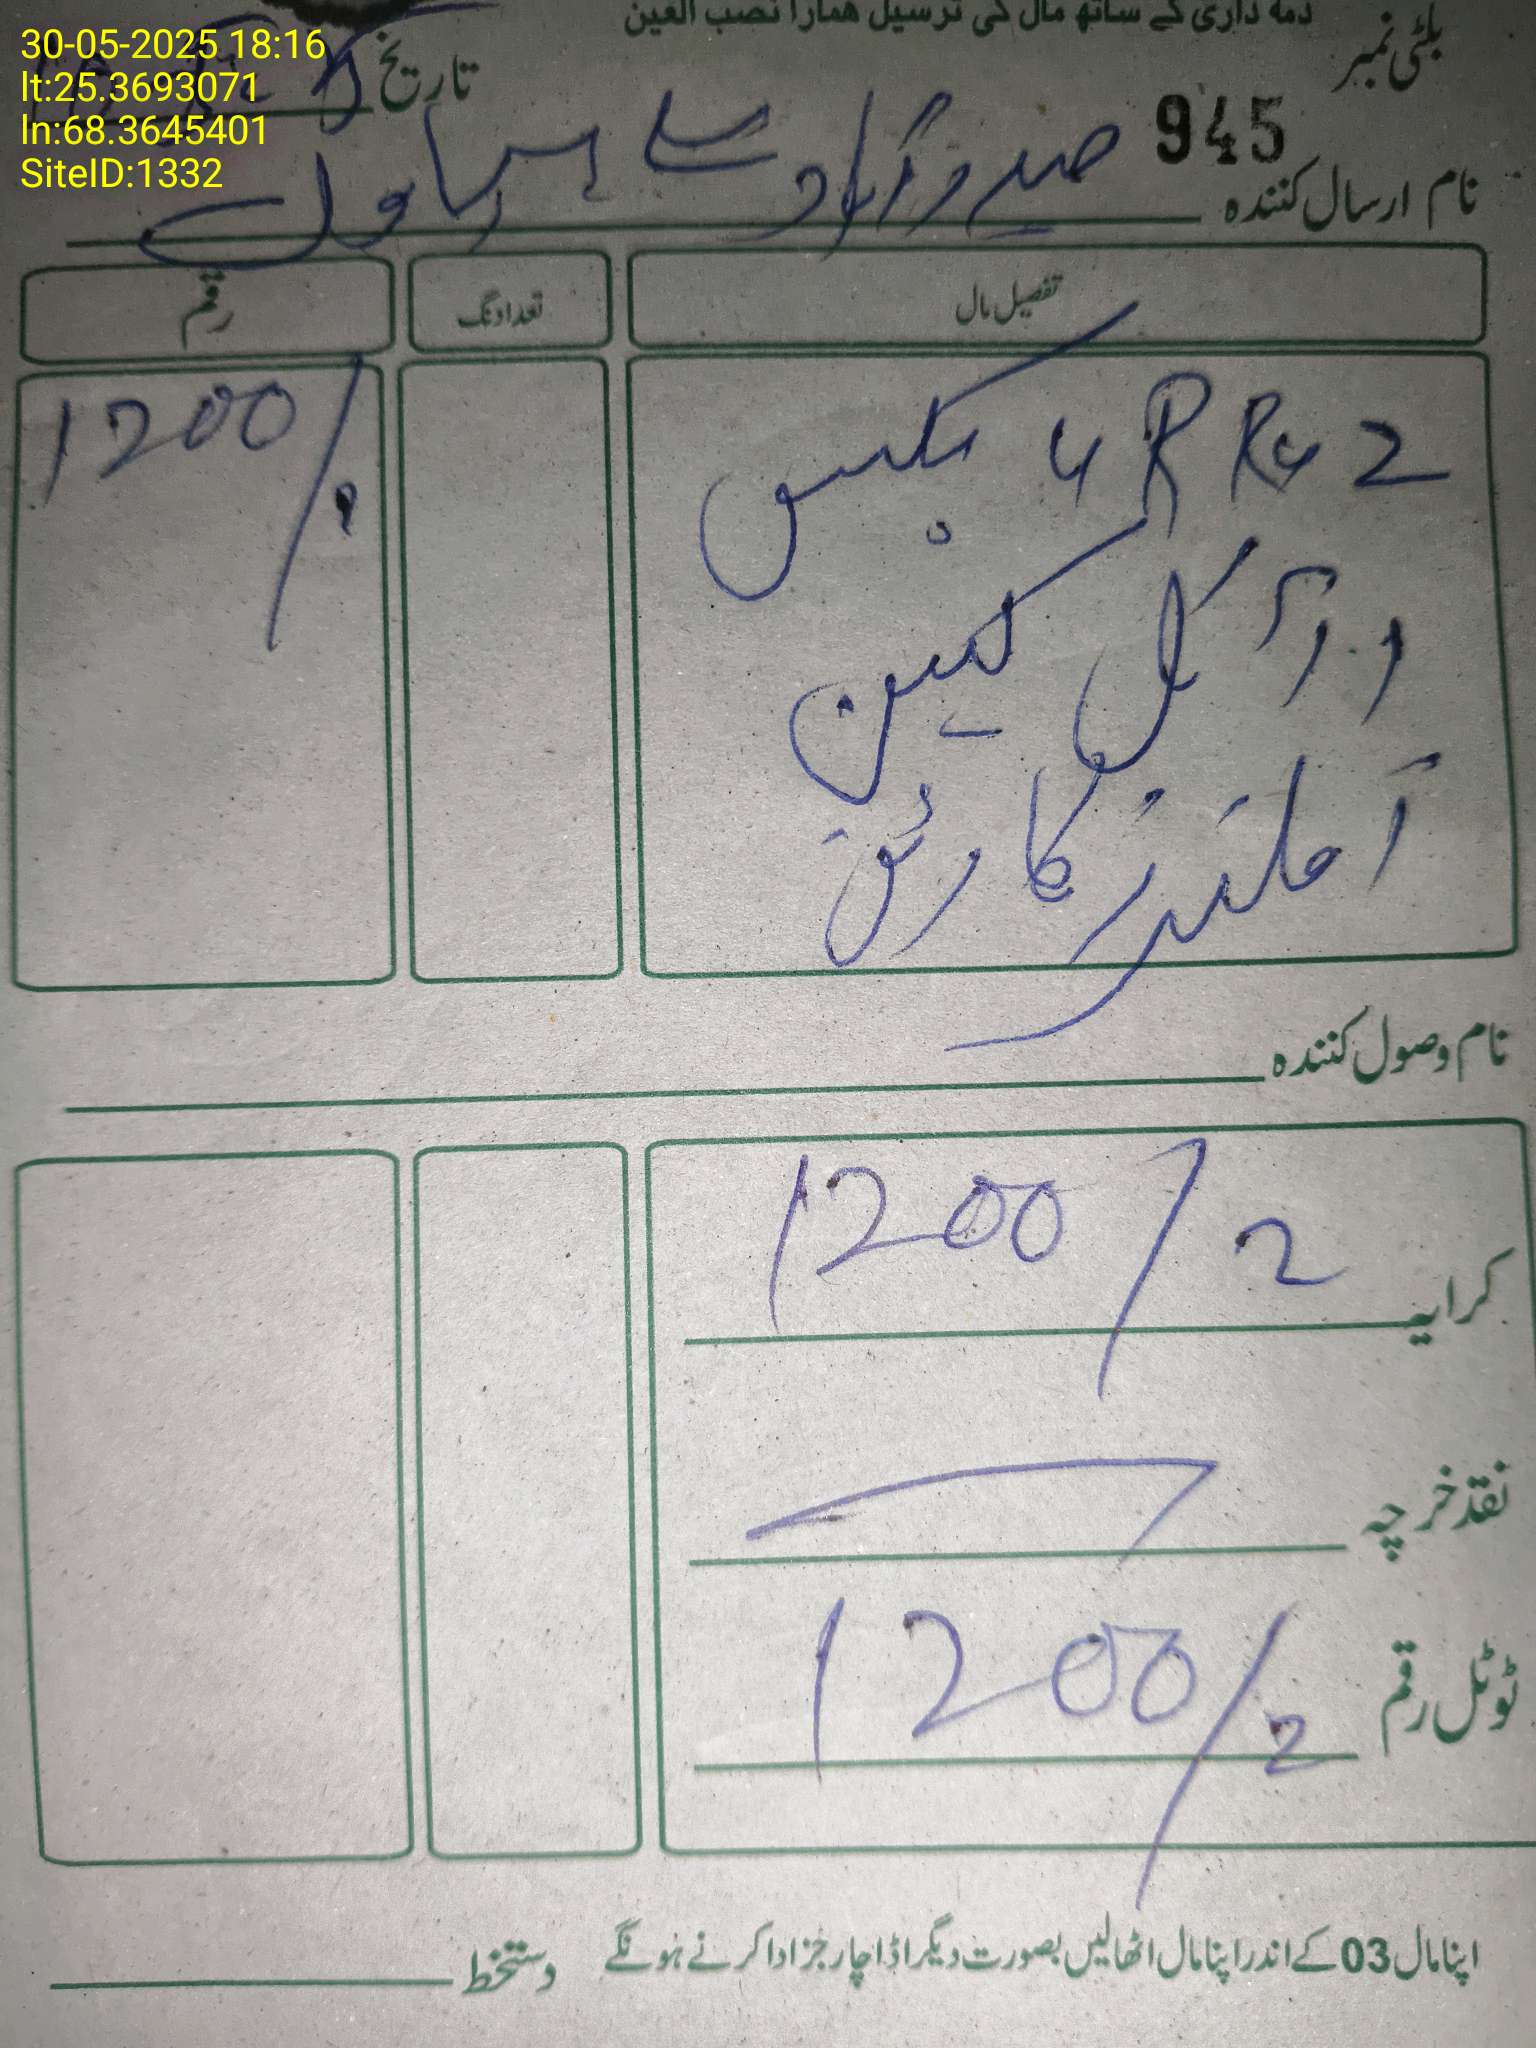 30-05-2025 18:16
lt:25.3693071
ln:68.3645401
SiteID:1332
ذمہ داری کے ساتھ مال کی ترسیل ھمارا نصب العین
بلٹی نمبر
945
تاریخ
نام ارسال کنندہ
حیدرآباد سے
تفصیل مال
تعداد نگ
رقم
2 بکس
1200/
آئل کین
نام وصول کنندہ
کرایہ 1200/2
نقد خرچہ
ٹوٹل رقم 1200/2
اپنا مال 03 کے اندر اپنا مال اٹھالیں بصورت دیگر اڈا چارجز ادا کرنے ہونگے
دستخط